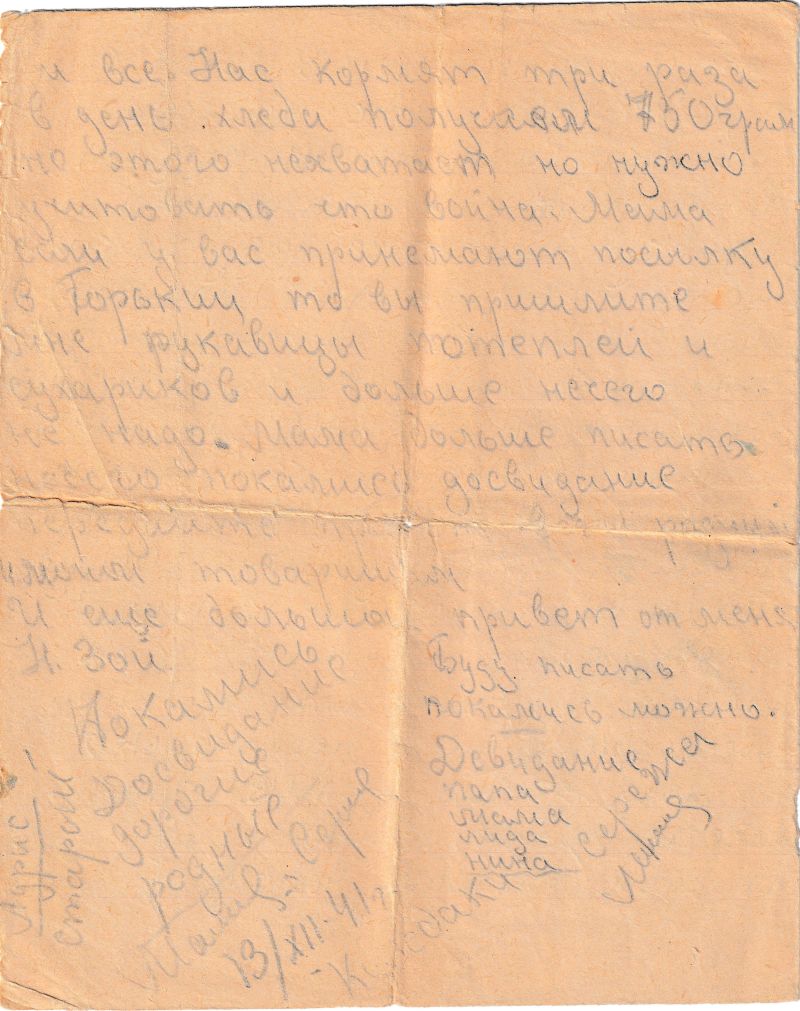 и все. Нас кормят три раза
в день хлеба получаем 750 грам
но этого нехватает но нужно
учитовать что война. Мама
если у вас принемают посылку
в Горький то вы пришлите
мне рукавицы потеплей и
сухариков и больше нечего
не надо. Мама больше писать
нечего покамись досвидание
передайте привет всем
и моим товарищам
И еще большой привет от меня
Н. Зой.
Буду писать
покамись можно.
Досвидание
папа
мама
лида
нина
Сережа
Покамись
Досвидание
дорогие
родные
13/XII-41г
Адрис
старый